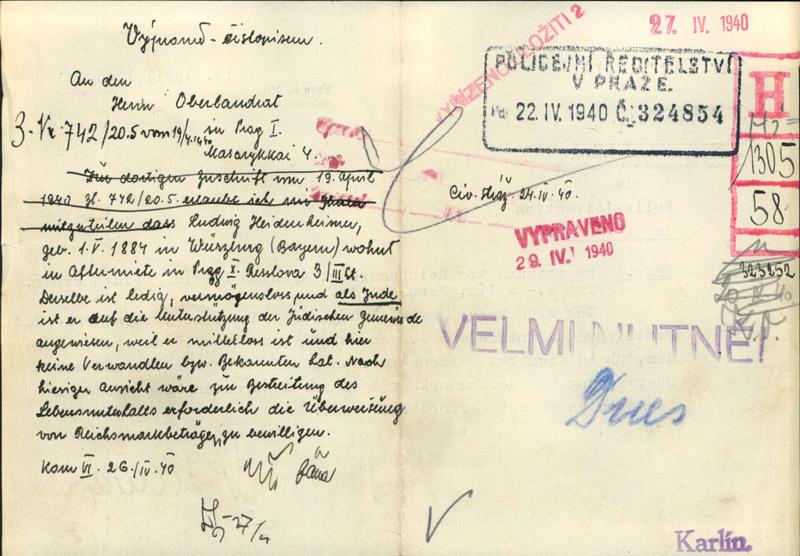 Výpravně-čistopisem.
An den
Herrn Oberlandrat
3-Vr 742/20.5 vom 19/4.1940
in Prag I.
Masarykkai 4
Zur dortigen Zuschrift vom 19. April
1940 Zl. 742/20.5. erlaube ich mir
mitzuteilen dass Ludwig Heidenheimer,
geb. 1.V.1884 in Würzburg (Bayern) wohnt
in Aftermiete in Prag X. Resslova 3/III St.
Derselbe ist ledig, vermögensloss und als Jude
ist er auf die Unterstützung der Jüdischen Gemeinde
angewiesen, weil er mittelloss ist und hier
keine Verwandten bzw. Bekannten hat. Nach
hiesiger Ansicht wäre zur Bestreitung des
Lebensunterhalts erforderlich die Überweisung
von Reichsmarkbeträgen zu bewilligen.
Kom VI. 26/IV.40
27/4
27. IV. 1940
VYŘÍZENO ULOŽITI 2
POLICEJNÍ ŘEDITELSTVÍ
V PRAZE.
22. IV. 1940 Č. 324854
H
1305
58
Civ. stráž. 24.IV.40.
VYPRAVENO
29. IV. 1940
323252
VELMI NUTNÉ!
Dnes
Karlín.